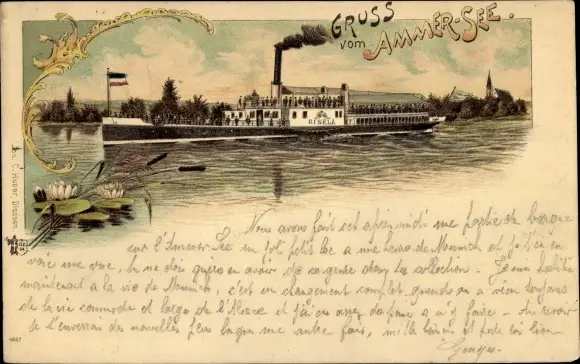 GRUSS
vom AMMER-SEE.
GISELA
Jos. C. Huber, Diessen
Nous avons fait cet après midi une partie de barque
sur l'Ammer-See un joli petit lac a une heure de Munich et je t'en
envoie une vue, tu ne dois guère en avoir de ce genre dans ta collection. Je suis habitué
maintenant a la vie de Munich, c'est un changement complet, quand on a vécu toujours
de la vie commode et large de l'Alsace et j'ai eu assez de peine a m'y faire - Au revoir
je t'enverrai des nouvelles plus longues une autre fois, mille et
Georges.
4087